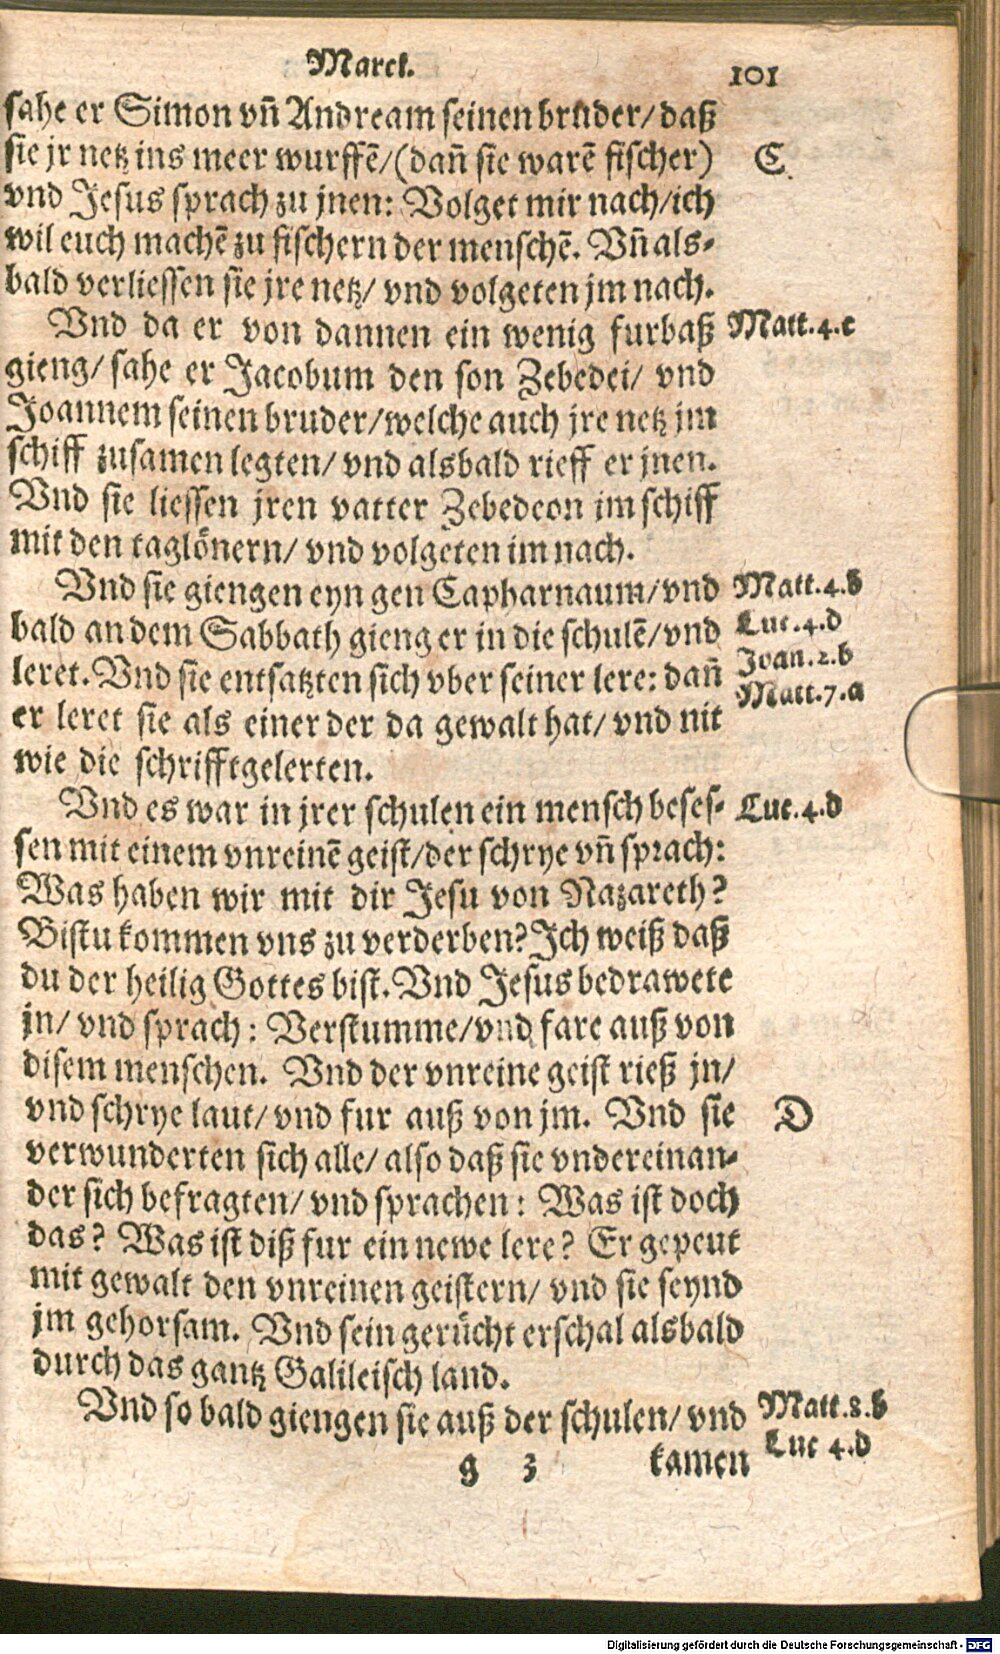 Marck.
101
sahe er Simon vñ Andream seinen brůder/ daß
sie jr netz ins meer wurffē/(dañ sie warē fischer)
C.
vnd Jesus sprach zu jnen: Volget mir nach/ich
wil euch machē zu fischern der menschē. Vñ als-
bald verliessen sie jre netz/ vnd volgeten jm nach.
Vnd da er von dannen ein wenig furbaß
Matt.4.c
gieng/ sahe er Jacobum den son Zebedei/ vnd
Joannem seinen bruder/welche auch jre netz jm
schiff zusamen legten/ vnd alsbald rieff er jnen.
Vnd sie liessen jren vatter Zebedeon im schiff
mit den taglönern/ vnd volgeten im nach.
Vnd sie giengen eyn gen Capharnaum/vnd
Matt.4.b
bald an dem Sabbath gieng er in die schulē/vnd
Luc.4.d
leret. Vnd sie entsatzten sich vber seiner lere: dañ
Joan.2.b
er leret sie als einer der da gewalt hat/ vnd nit
Matt.7.a
wie die schrifftgelerten.
Vnd es war in jrer schulen ein mensch beses-
Luc.4.d
sen mit einem vnreinē geist/der schrye vñ sprach:
Was haben wir mit dir Jesu von Nazareth?
Bistu kommen vns zu verderben? Ich weiß daß
du der heilig Gottes bist. Vnd Jesus bedrawete
jn/ vnd sprach: Verstumme/vnd fare auß von
disem menschen. Vnd der vnreine geist rieß jn/
vnd schrye laut/ vnd fur auß von jm. Vnd sie
D
verwunderten sich alle/ also daß sie vndereinan-
der sich befragten/ vnd sprachen: Was ist doch
das? Was ist diß fur ein newe lere? Er gepeut
mit gewalt den vnreinen geistern/ vnd sie seynd
jm gehorsam. Vnd sein gerücht erschal alsbald
durch das gantz Galileisch land.
Vnd so bald giengen sie auß der schulen/ vnd
Matt.8.b
Luc 4.d
g 3
kamen
Digitalisierung gefördert durch die Deutsche Forschungsgemeinschaft - DFG